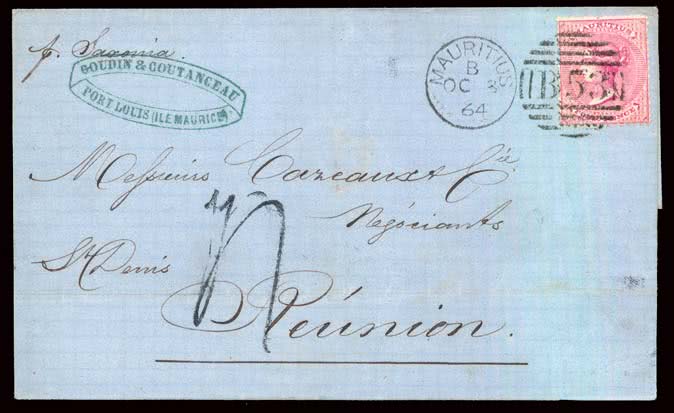 p. Saxonia
GOUDIN & COUTANCEAU
PORT LOUIS (ILE MAURICE)
MAURITIUS
B
OC 3
64
B53
MAURITIUS
Messieurs Cazeaux & Cie
Négociants
St Denis
Réunion.